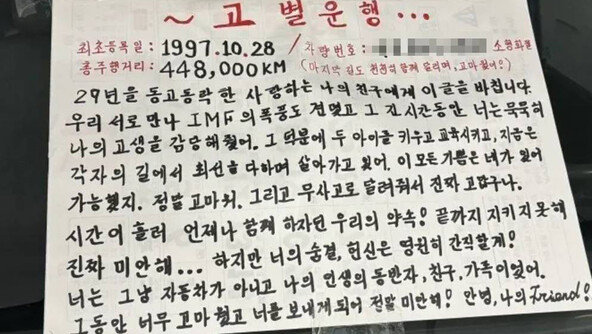 ~ 고별운행...
최초등록일 : 1997.10.28 / 차량번호 : 소형화물
총주행거리 : 448,000KM (마지막 길도 천천히 함께 달리며, 고마웠어!)
29년을 동고동락한 사랑하는 나의 친구에게 이 글을 바칩니다.
우리 서로 만나 IMF의 폭풍도 견뎠고 그 긴시간동안 너는 묵묵히
나의 고생을 감당해줬어. 그 덕분에 두 아이를 키우고 교육시키고, 지금은
각자의 길에서 최선을 다하며 살아가고 있어. 이 모든 기쁨은 네가 있어
가능했지. 정말 고마워. 그리고 무사고로 달려줘서 진짜 고맙구나.
시간이 흘러 언제나 함께 하자던 우리의 약속! 끝까지 지키지 못해
진짜 미안해... 하지만 너의 숨결, 헌신은 영원히 간직할게!
너는 그냥 자동차가 아니고 나의 인생의 동반자, 친구, 가족이었어.
그동안 너무 고마웠고 너를 보내게 되어 정말 미안해! 안녕, 나의 Friend!